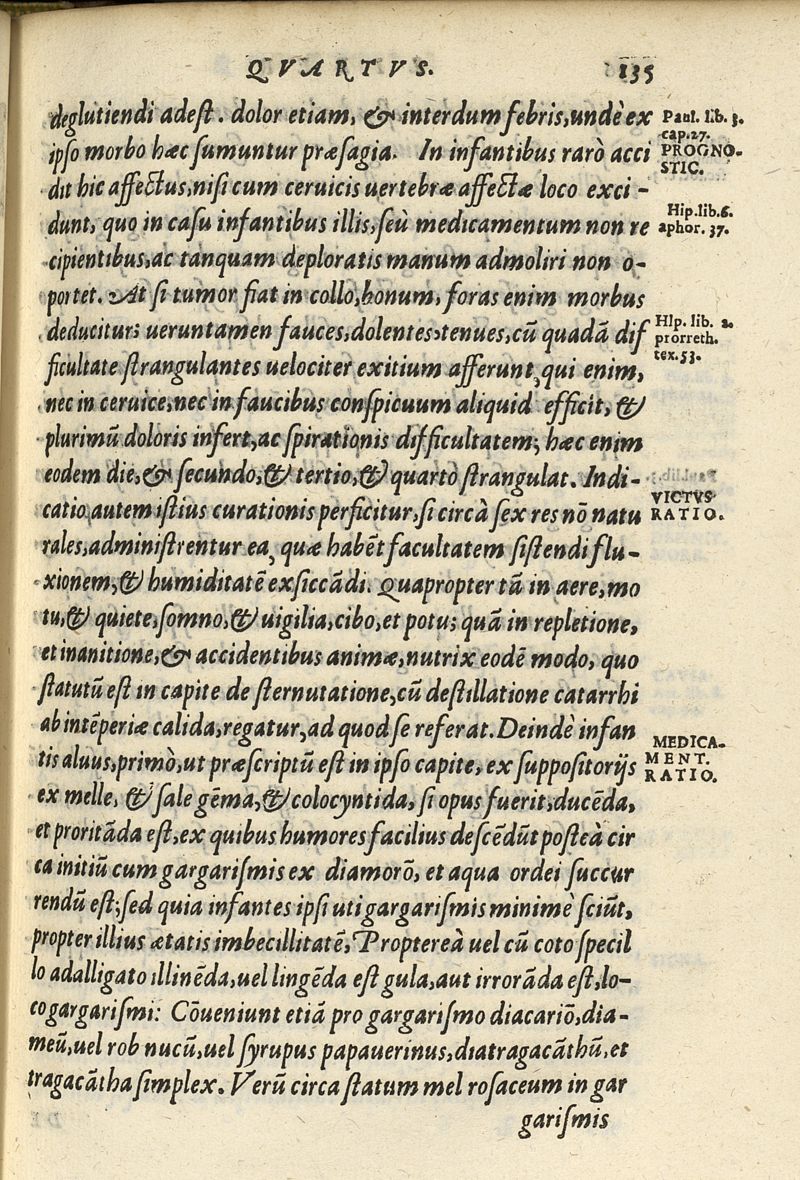 QVARTVS. 135
deglutiendi adeſt. dolor etiam, & interdum febris, undè ex
ipſo morbo hæc ſumuntur præſagia. In infantibus rarò acci
dit hic affectus, niſi cum ceruicis uertebræ affectæ loco exci-
dunt, quo in caſu infantibus illis, ſeù medicamentum non re
cipientibus, ac tanquam deploratis manum admoliri non o-
portet. At ſi tumor fiat in collo, bonum, foras enim morbus
deducitur; ueruntamen fauces, dolentes, tenues, cũ quadã dif
ficultate ſtrangulantes uelociter exitium afferunt, qui enim,
nec in ceruice, nec in faucibus conſpicuum aliquid efficit, &
plurimũ doloris infert, ac ſpirationis difficultatem; hæc enim
eodem die, & ſecundo, & tertio, & quartò ſtrangulat. Indi-
catio autem iſtius curationis perficitur, ſi circà ſex res nõ natu
rales, adminiſtrentur ea, quæ habẽt facultatem ſiſtendi flu-
xionem, & humiditatẽ exſiccãdi. Quapropter tã in aere, mo
tu, & quiete, ſomno, & uigilia, cibo, et potu; quã in repletione,
et inanitione, & accidentibus animæ, nutrix eodẽ modo, quo
ſtatutũ eſt in capite de ſternutatione, cũ deſtillatione catarrhi
ab intẽperiæ calida, regatur, ad quod ſe referat. Deindè infan
tis aluus, primò, ut præſcriptũ eſt in ipſo capite, ex ſuppoſitorijs
ex melle, & ſale gẽma, & colocyntida, ſi opus fuerit, ducẽda,
et proritãda eſt, ex quibus humores facilius deſcẽdũt poſteà cir
ca initiũ cum gargariſmis ex diamorõ, et aqua ordei ſuccur
rendũ eſt; ſed quia infantes ipſi uti gargariſmis minimè ſciũt,
propter illius ætatis imbecillitatẽ, Proptereà uel cũ coto ſpecil
lo adalligato illinẽda, uel lingẽda eſt gula, aut irrorãda eſt, lo-
co gargariſmi: Cõueniunt etiã pro gargariſmo diacariõ, dia-
meũ, uel rob nucũ, uel ſyrupus papauerinus, diatragacãthũ, et
tragacãtha ſimplex. Verũ circa ſtatum mel roſaceum in gar
gariſmis
Paul. lib. 3.
cap. 27.
PROGNO-
STIC.
Hip. lib. 6.
aphor. 37.
HIp. lib. 2.
prorreth.
tex. 53.
VICTVS
RATIO.
MEDICA-
MENT.
RATIO.